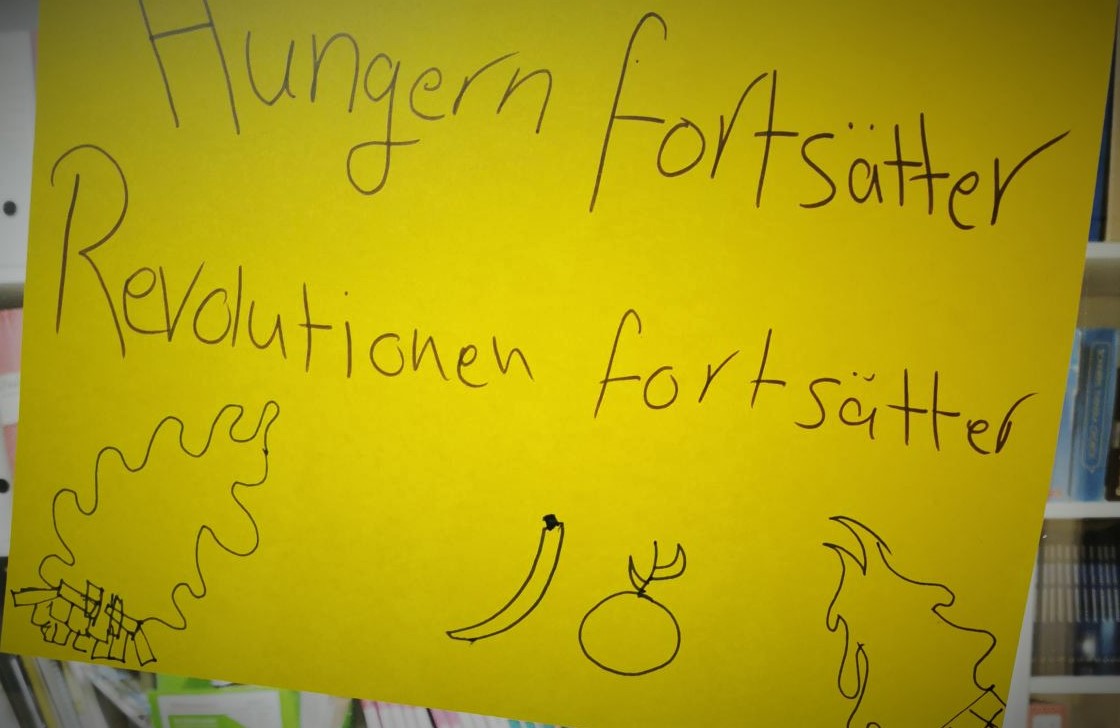 Hungern fortsätter
Revolutionen fortsätter